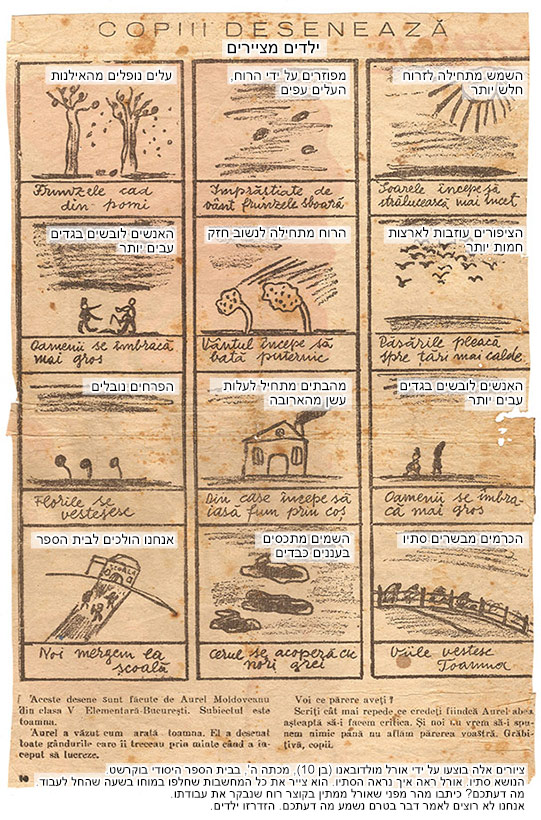 COPIII DESENEAZĂ
ילדים מציירים
עלים נופלים מהאילנות
Frunzele cad
din pomi
מפוזרים על ידי הרוח,
העלים עפים
Imprăștiate de
vânt frunzele sboară
השמש מתחילה לזרוח
חלש יותר
Soarele începe să
strălucească mai încet
האנשים לובשים בגדים
עבים יותר
Oamenii se îmbracă
mai gros
הרוח מתחילה לנשוב חזק
Vântul începe să
bată puternic
הציפורים עוזבות לארצות
חמות יותר
Păsările pleacă
spre țări mai calde
הפרחים נובלים
Florile se
veștejesc
מהבתים מתחיל לעלות
עשן מהארובה
Din case începe să
iasă fum prin coș
האנשים לובשים בגדים
עבים יותר
Oamenii se îmbra-
că mai gros
אנחנו הולכים לבית הספר
ȘCOALA
Noi mergem la
școală
השמים מתכסים
בעננים כבדים
Cerul se acoperă cu
nori grei
הכרמים מבשרים סתיו
Viile vestesc
Toamna
Aceste desene sunt făcute de Aurel Moldoveanu
din clasa V Elementară-București. Subiectul este
toamna.
Aurel a văzut cum arată toamna. El a desenat
toate gândurile care îi treceau prin minte când a în-
ceput să lucreze.
Voi ce părere aveți?
Scriți cât mai repede ce credeți fiindcă Aurel abea
așteaptă să-i facem critica. Și noi nu vrem să-i spu-
nem nimic până nu aflăm părerea voastră. Grăbi-
tivă, copii.
10
ציורים אלה בוצעו על ידי אורל מולדובאנו (בן 10), מכתה ה', בבית הספר היסודי בוקרשט.
הנושא סתיו. אורל ראה איך נראה הסתיו. הוא צייר את כל המחשבות שחלפו במוחו בשעה שהחל לעבוד.
מה דעתכם? כיתבו מהר מפני שאורל ממתין בקוצר רוח שנבקר את עבודתו.
אנחנו לא רוצים לאמר דבר בטרם נשמע מה דעתכם. הזדרזו ילדים.